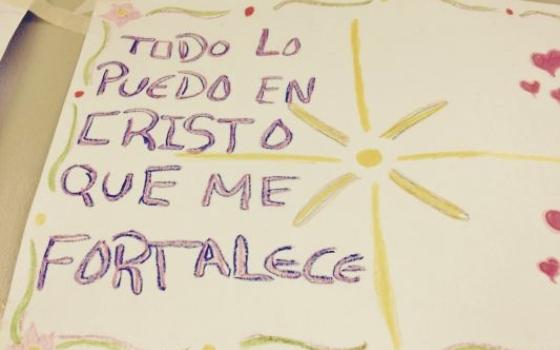 TODO LO
PUEDO EN
CRISTO
QUE ME
FORTALECE